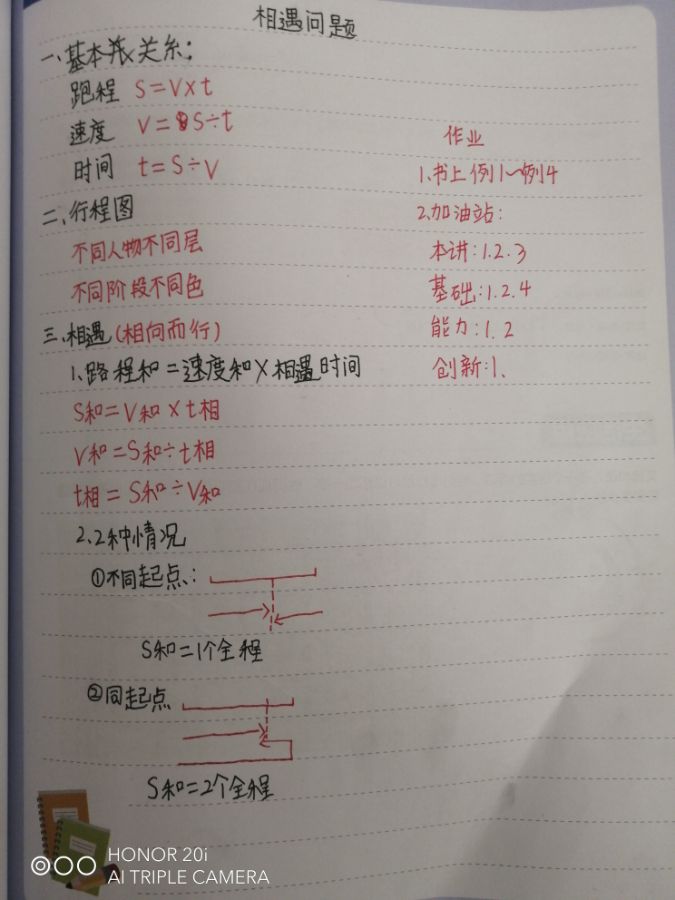 相遇问题
一、基本关系:
跑程 S=V×t
速度 V=S÷t
时间 t=S÷V
二、行程图
不同人物不同层
不同阶段不同色
三、相遇(相向而行)
1、路程和=速度和×相遇时间
S和=V和×t相
V和=S和÷t相
t相=S和÷V和
2、2种情况
①不同起点:
S和=1个全程
②同起点
S和=2个全程
作业
1、书上例1~例4
2、加油站:
本讲:1.2.3
基础:1.2.4
能力:1.2
创新:1、
HONOR 20i
AI TRIPLE CAMERA